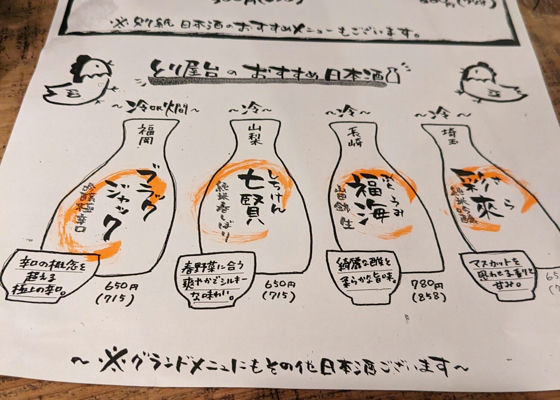 ※ 別紙 日本酒のおすすめメニューもございます。
とり屋台のおすすめ日本酒
～冷OR燗～
福岡
ブラックジャック
吟醸極辛口
辛口の概念を
超える
極上の辛口。
650円
(715)
～冷～
山梨
しちけん
七賢
純米春しぼり
春野菜に合う
爽やかでシルキー
な味わい。
650円
(715)
～冷～
長崎
ふくうみ
福海
山田錦 生
綺麗な酸と
柔らかな旨味。
780円
(858)
～冷～
埼玉
彩來
純米吟醸
マスカットを
思わせる香りと
甘み。
～※グランドメニューにもその他日本酒ございます～